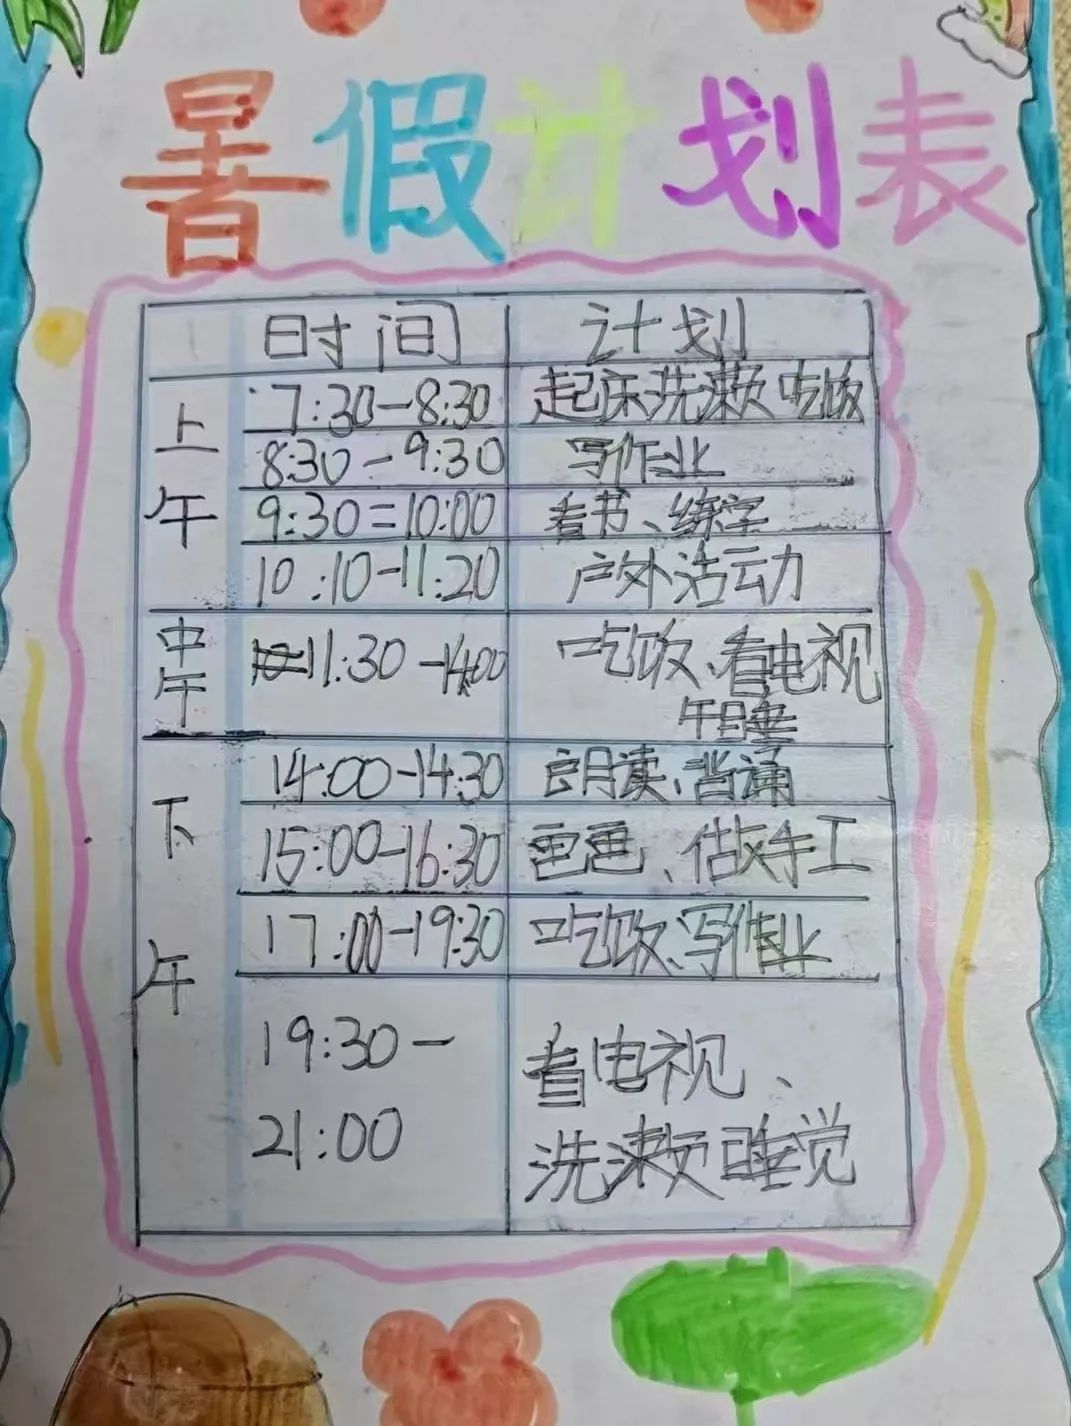 暑假计划表
时间 计划
上午
7:30-8:30 起床洗漱 吃饭
8:30-9:30 写作业
9:30=10:00 看书、练字
10:10-11:20 户外活动
中午
11:30-14:00 吃饭、看电视
午睡
下午
14:00-14:30 朗读、背诵
15:00-16:30 画画、做手工
17:00-19:30 吃饭、写作业
19:30- 看电视、
21:00 洗漱睡觉